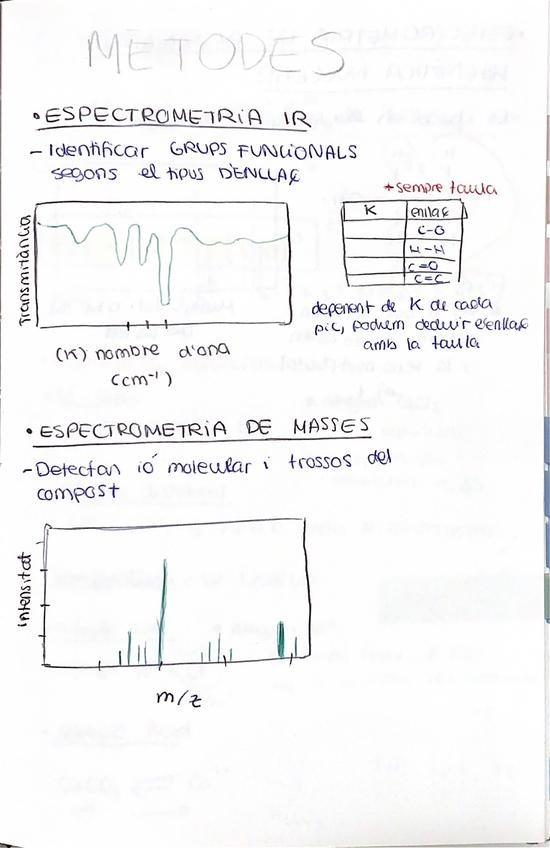 METODES
• ESPECTROMETRIA IR
- Identificar GRUPS FUNCIONALS
segons el tipus D'ENLLAÇ
+ sempre taula
Transmitància
K enllaç
C-O
H-H
C=O
C=C
(K) nombre d'ona
(cm⁻¹)
depenent de K de cada
pic, podrem deduir l'enllaç
amb la taula
• ESPECTROMETRIA DE MASSES
- Detectan ió molecular i trossos del
compost
intensitat
m/z